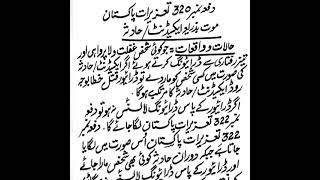 دفعہ نمبر 320 تعزیرات پاکستان
موت بذریعہ ایکسیڈنٹ/حادثہ
حالات و واقعات = جو کوئی شخص غفلت ولا پرواہی اور
تیز رفتاری سے ڈرائیونگ کرتے ہوئے اگر ایکسیڈنٹ/حادثہ
کی صورت میں کسی شخص کو مار دے تو ڈرائیور قتل خطا بوجہ
روڈ ایکسیڈنٹ/حادثہ کا مرتکب ہوگا۔
اگر ڈرائیور کے پاس ڈرائیونگ لائسنس نہ ہو تو دفعہ
322 تعزیرات پاکستان لگا جائے گا۔ دفعہ نمبر
322 تعزیرات پاکستان اُس صورت میں لگایا
جاتا ہے جبکہ دوران حادثہ کوئی بھی شخص مارا جائے
اور ڈرائیور کے پاس ڈرائیونگ لائسنس